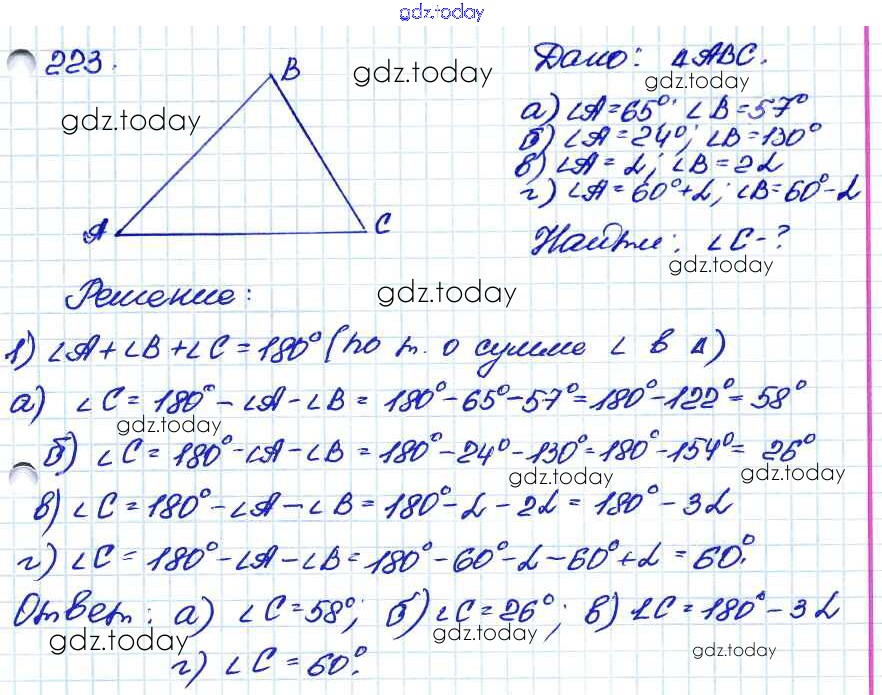 gdz.today
223.
B
gdz.today
Дано: ΔABC.
gdz.today
gdz.today
а) ∠A = 65°; ∠B = 57°
б) ∠A = 24°; ∠B = 130°
в) ∠A = α; ∠B = 2α
г) ∠A = 60°+α; ∠B = 60°-α
A
C
Найти: ∠C-?
gdz.today
Решение:
gdz.today
1) ∠A + ∠B + ∠C = 180° (по т. о сумме ∠ в Δ)
а) ∠C = 180° - ∠A - ∠B = 180° - 65° - 57° = 180° - 122° = 58°
gdz.today
б) ∠C = 180° - ∠A - ∠B = 180° - 24° - 130° = 180° - 154° = 26°
gdz.today
gdz.today
в) ∠C = 180° - ∠A - ∠B = 180° - α - 2α = 180° - 3α
г) ∠C = 180° - ∠A - ∠B = 180° - 60° - α - 60° + α = 60°.
Ответ: а) ∠C = 58°; б) ∠C = 26°; в) ∠C = 180° - 3α
gdz.today
gdz.today
г) ∠C = 60°.
gdz.today